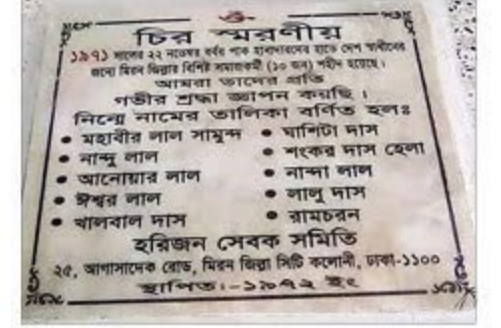 ওঁ
চির স্মরণীয়
১৯৭১ সালের ২২ নভেম্বর বর্বর পাক হানাদারদের হাতে দেশ স্বাধীনের
জন্যে মিরন জিল্লার বিশিষ্ট সমাজকর্মী (১০ জন) শহীদ হয়েছে।
আমরা তাদের প্রতি
গভীর শ্রদ্ধা জ্ঞাপন করছি।
নিম্নে নামের তালিকা বর্ণিত হলঃ
• মহাবীর লাল সামুন্দ • ঘাশিটা দাস
• নান্দু লাল • শংকর দাস হেলা
• আনোয়ার লাল • নান্দা লাল
• ঈশ্বর লাল • লালু দাস
• খালবাল দাস • রামচরন
হরিজন সেবক সমিতি
২৫, আগাসাদেক রোড, মিরন জিল্লা সিটি কলোনী, ঢাকা-১১০০
স্থাপিতঃ-১৯৭২ ইং